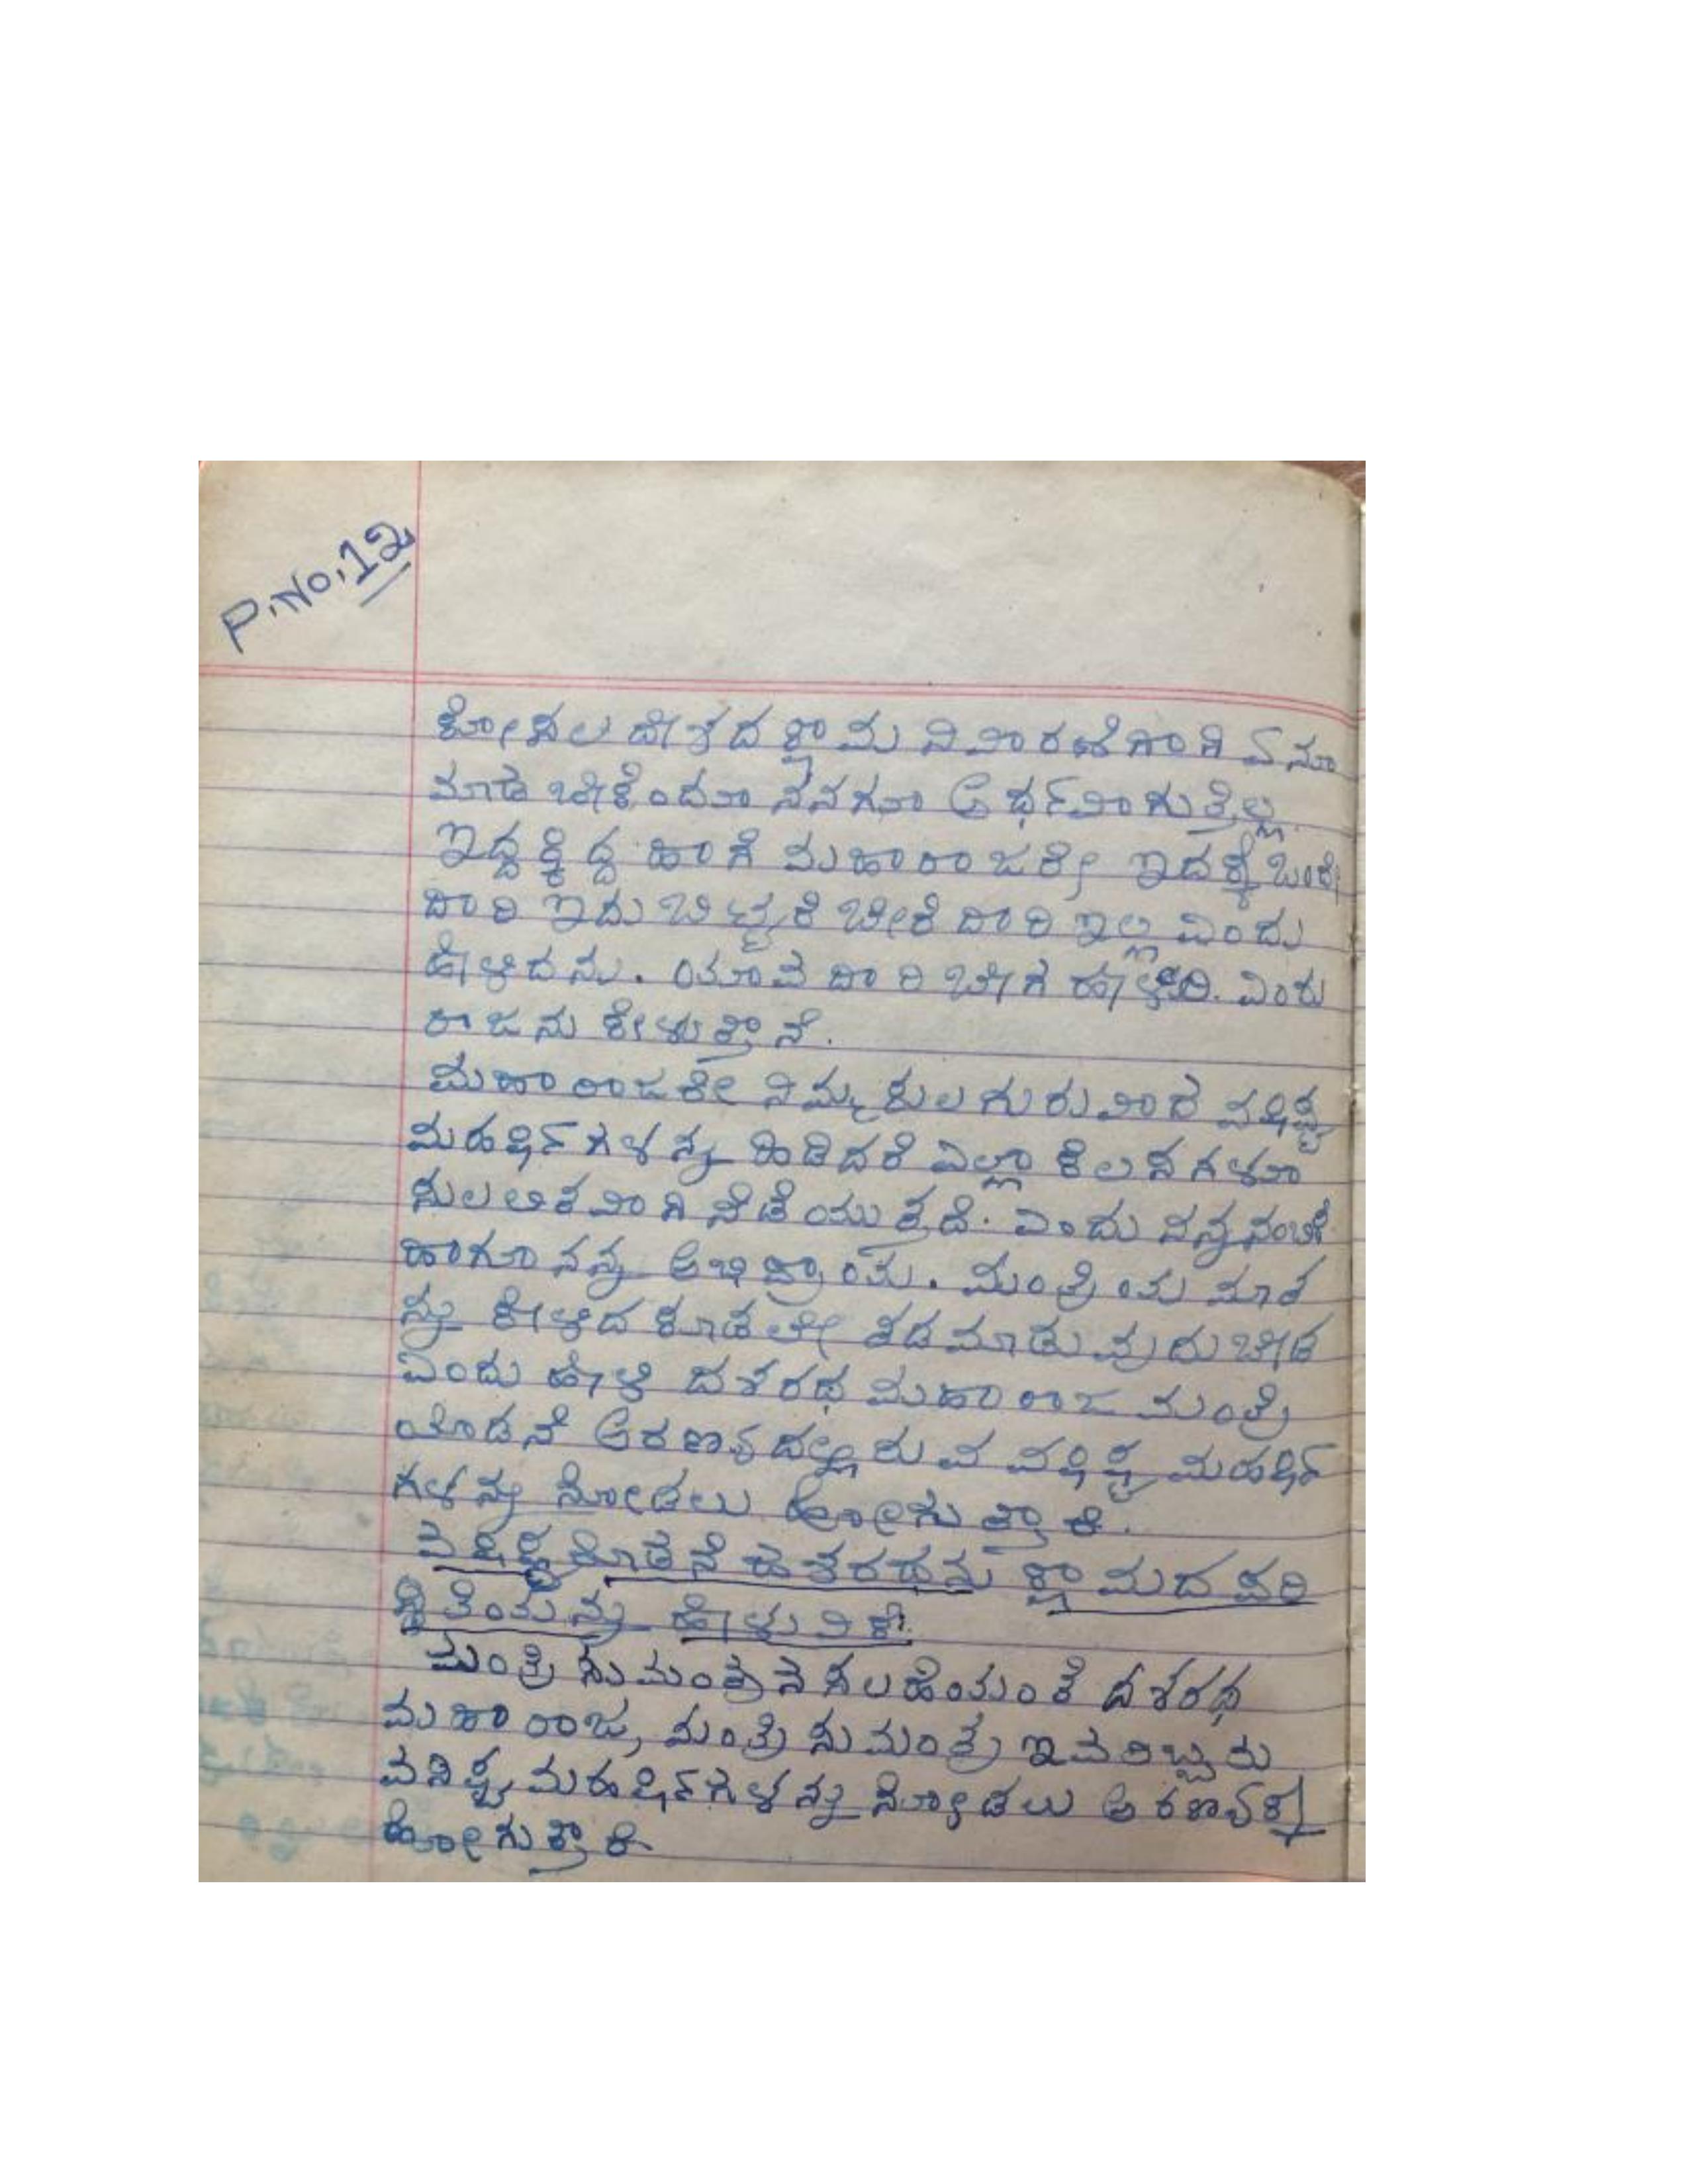 P.No.12
ಕೋಸಲ ದೇಶದ ಕ್ಷಾಮ ನಿವಾರಣೆಗಾಗಿ ಏನೂ
ಮಾಡ ಬೇಕೆಂದೂ ನನಗೂ ಅರ್ಥವಾಗುತ್ತಿಲ್ಲ.
ಇದ್ದಕ್ಕಿದ್ದ ಹಾಗೆ ಮಹಾರಾಜರೇ ಇದಕ್ಕೆ ಒಂದೇ
ದಾರಿ ಇದು ಬಿಟ್ಟರೆ ಬೇರೆ ದಾರಿ ಇಲ್ಲ ಎಂದು
ಹೇಳಿದನು. ಯಾವ ದಾರಿ ಬೇಗ ಹೇಳಿರಿ. ಎಂದು
ರಾಜನು ಕೇಳುತ್ತಾನೆ.
ಮಹಾರಾಜರೇ ನಿಮ್ಮ ಕುಲಗುರುವಾದ ವಶಿಷ್ಟ
ಮಹರ್ಷಿಗಳನ್ನು ಹಿಡಿದರೆ ಎಲ್ಲಾ ಕೆಲಸಗಳೂ
ಸುಲಲಿತವಾಗಿ ನೆಡೆಯುತ್ತದೆ. ಎಂದು ನನ್ನ ನಂಬಿಕೆ
ಹಾಗೂ ನನ್ನ ಅಭಿಪ್ರಾಯ. ಮಂತ್ರಿಯ ಮಾತ
ನ್ನು ಕೇಳಿದ ಕೂಡಲೇ ತಡಮಾಡುವುದು ಬೇಡ
ಎಂದು ಹೇಳಿ ದಶರಥ ಮಹಾರಾಜ ಮಂತ್ರಿ
ಯೊಡನೆ ಅರಣ್ಯದಲ್ಲಿರುವ ವಶಿಷ್ಟ ಮಹರ್ಷಿ
ಗಳನ್ನು ನೋಡಲು ಹೋಗುತ್ತಾರೆ.
ವಶಿಷ್ಟರೊಡನೆ ದಶರಥನು ಕ್ಷಾಮದ ಪರಿ
ಸ್ಥಿತಿಯನ್ನು ಹೇಳುವಿಕೆ.
ಮಂತ್ರಿ ಸುಮಂತ್ರನ ಸಲಹೆಯಂತೆ ದಶರಥ
ಮಹಾರಾಜ, ಮಂತ್ರಿ ಸುಮಂತ್ರ ಇವರಿಬ್ಬರು
ವಸಿಷ್ಟ ಮಹರ್ಷಿಗಳನ್ನು ನೋಡಲು ಅರಣ್ಯಕ್ಕೆ
ಹೋಗುತ್ತಾರೆ